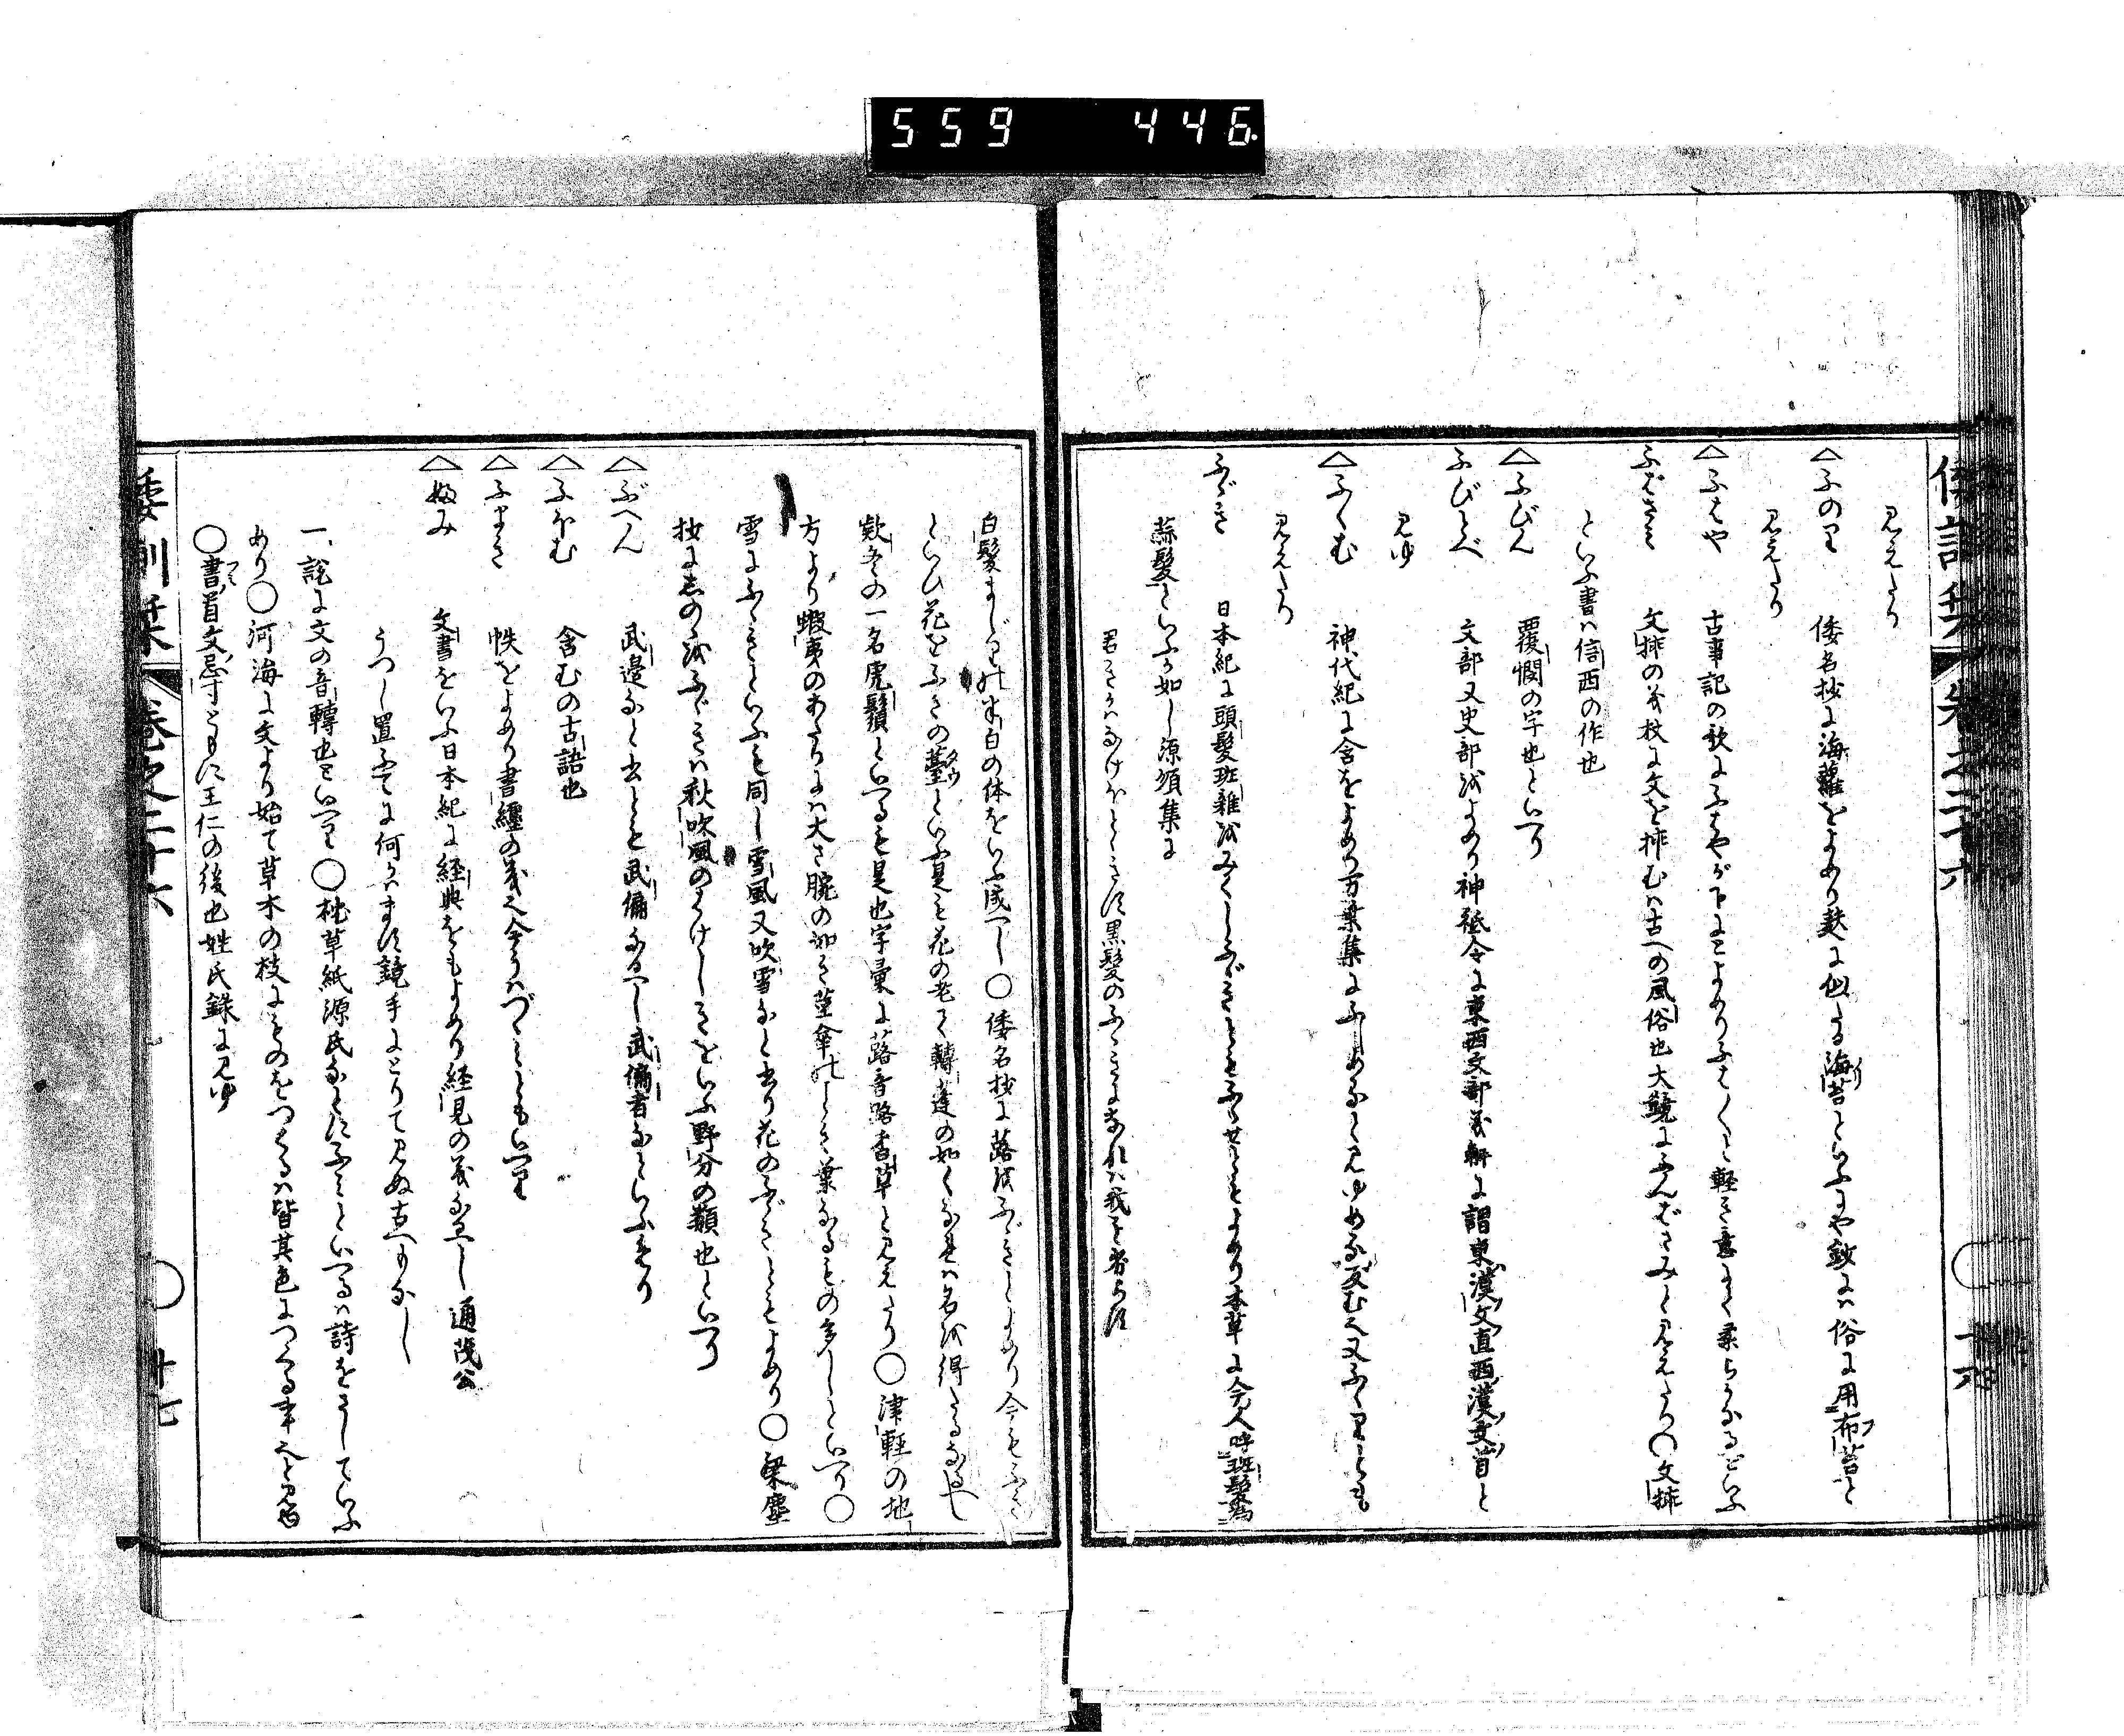 559 446
見えたり
△ふのり 倭名抄に海蘿をよめり麩に似たる海苔といふにや鈔には俗に用布苔と
見えたり
△ふはや 古事記の歌にふはやが下にとよめりふは〳〵と軽き意にて柔らかなるをいふ
ふばさみ 文挿の義杖に文を挿むは古への風俗也大鏡にふんばさみと見えたり〇文挿
といふ書は信西の作也
△ふびん 覆憫の字也といへり
ふびとべ 文部又史部をよめり神祇令に東西文部義解に謂東漢文直西漢文首と
見ゆ
△ふくむ 神代紀に含をよめり万葉集にふゝめなと見ゆめな反む也又ふくりとも
見えたり
ふゞき 日本紀に頭髪班雜をみぐしふゞきともふゝせりともよめり本草に今人呼班髪為
蒜髪といふか如し源順集に
白髪ましりの半白の体をいふ成へし〇倭名抄に蕗をふゞきとよめり今もふき
といひ花をふきの薹といふ是も花の老て轉蓬の如くなれは名を得たるなるへし
欵冬の一名虎鬚といへるも是也字彙に蕗音路香草と見えたり〇津軽の地
方より蝦夷のあたりには大さ腕の如き莖傘のことき葉なるもの多しといへり〇
雪にふゞきといふも同し雪風又吹雪なと書り花のふゞきともよめり〇梁塵
抄にしのをふゞきは秋吹風のはけしきをいふ野分の類也といへり
△ぶへん 武邊なと書とも武偏なるへし武偏者なといふ是なり
△ふほむ 含むの古語也
△ふまき 帙をよめり書纏の義也今うはづゝみともいへり
△ふみ 文書をいふ日本紀に経典をもよめり経見の義なるへし通茂公
うつし置ふてに何かはます鏡手にとりて見ぬ古へもなし
一説に文の音轉也といへり〇枕草紙源氏なとにふみといへるは詩をさしていふ
あり〇河海に文より始て草木の枝にものをつくるは皆其色につくる事也と見ゆ
〇書首文忌寸ともに王仁の後也姓氏録に見ゆ
倭訓栞 巻之二十六 〇 廿七